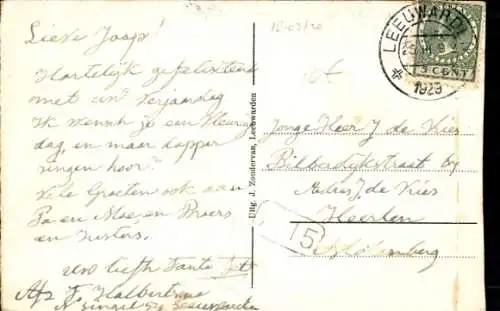 Lieve Jaap!
Hartelijk gefeliciteerd
met uw Verjaardag
Ik wensch je een fleurige
dag, en maar dapper
zingen hoor!
Vele Groeten ook aan
Pa en Moe en Broers
en Zusters.
uw liefh. Tante
Afz
Uitg. J. Zondervan, Leeuwarden
LEEUWARDEN
1929
CENT
Jonge Heer J de Vries
Bilderdijkstraat
Adres J. de Vries
Heerlen
15